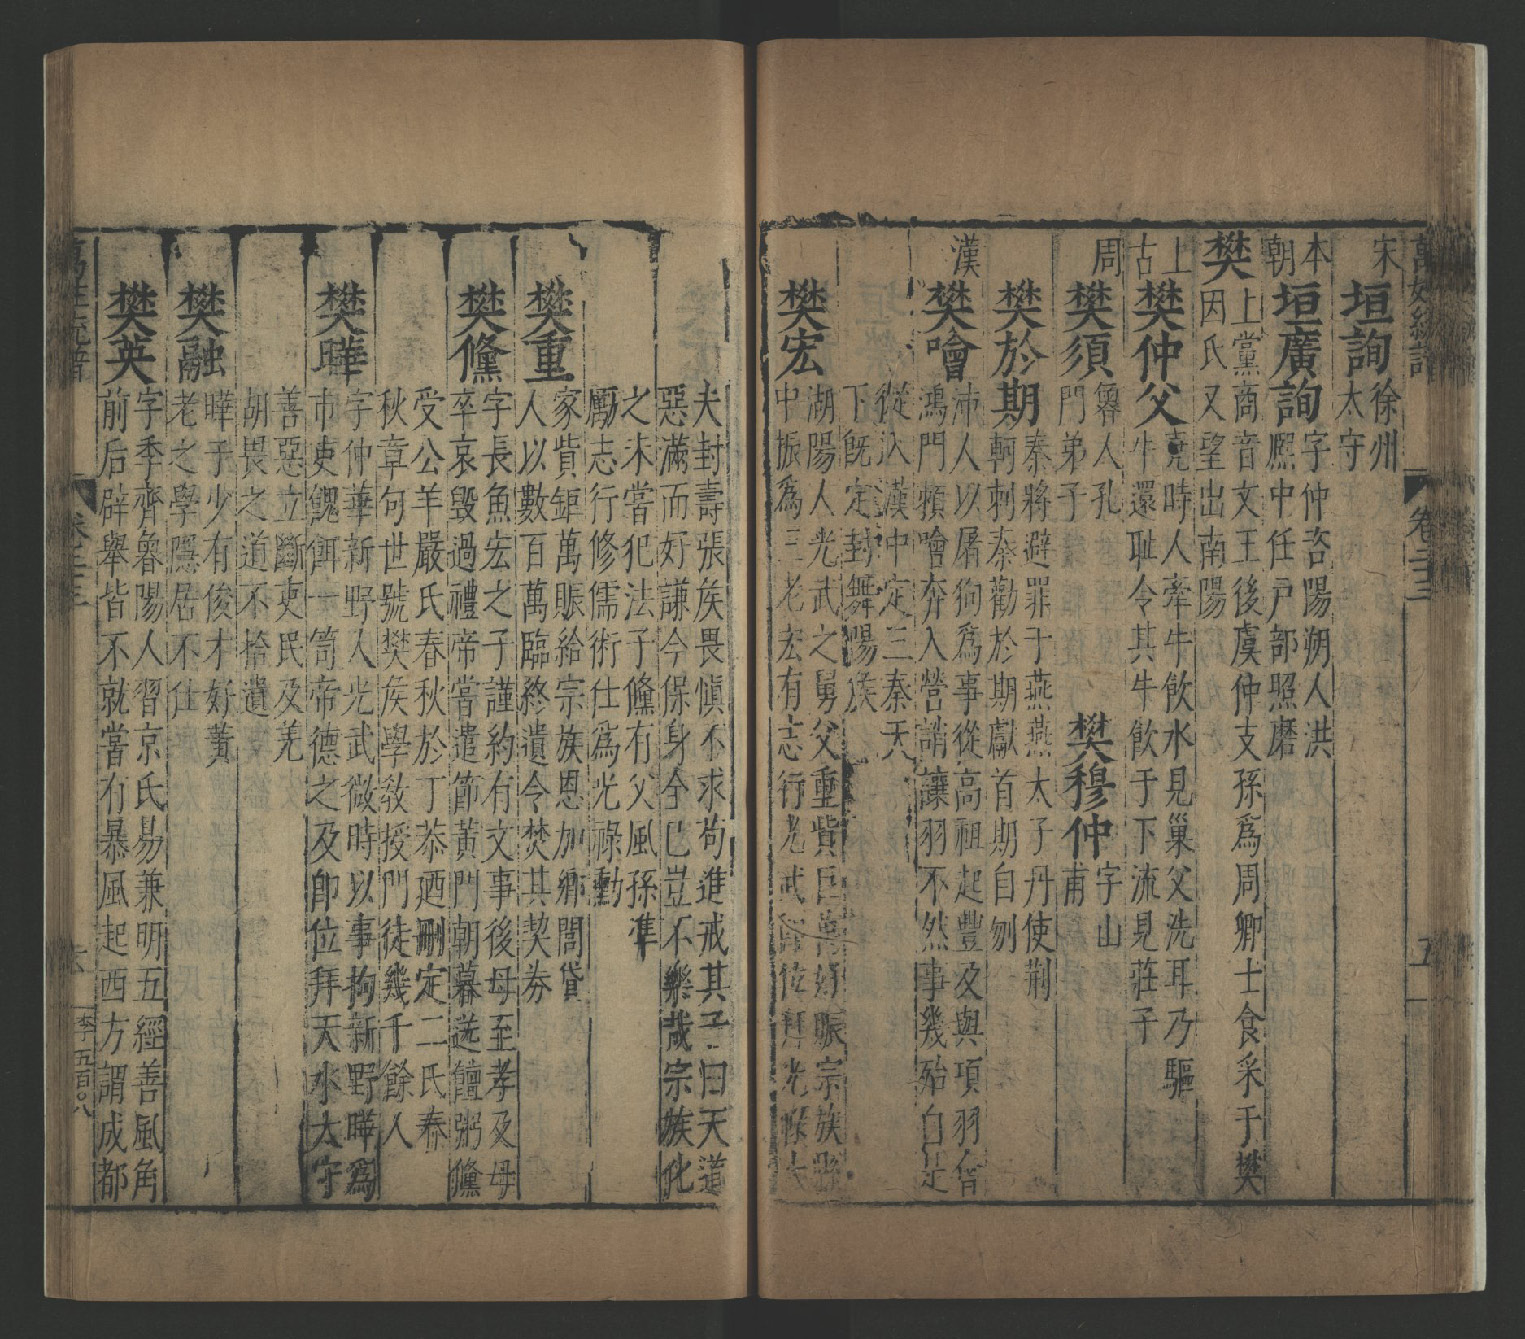 萬姓統譜
卷二十三
五
宋
垣詢
徐州
太守
本
朝
垣廣詢
字仲咨陽朔人洪
熙中任戶部照磨
樊
上黨商音文王後虞仲支孫為周卿士食采于樊
因氏又望出南陽
上
古
樊仲父
堯時人牽牛飲水見巢父洗耳乃驅
牛還耻令其牛飲于下流見莊子
周
樊須
魯人孔
門弟子
樊穆仲
字山
甫
樊於期
秦將避罪于燕燕太子丹使荆
軻刺秦勸於期獻首期自刎
漢
樊噲
沛人以屠狗為事從高祖起豐及與項羽會
鴻門賴噲奔入營誚讓羽不然事幾殆
從入漢中定三秦天
下既定封舞陽侯
樊宏
湖陽人光武之舅父重貲巨萬好賑宗族縣
中振為三老宏有志行光武即位拜光祿大
夫封壽張侯畏慎不求苟進戒其子曰天道
惡滿而好謙今保身全己豈不樂哉宗族化
之未嘗犯法子儵有父風孫準
勵志行修儒術仕為光祿勳
樊重
家貲鉅萬賑給宗族恩加鄉閭貸
人以數百萬臨終遺令焚其契劵
樊儵
字長魚宏之子謹約有文事後母至孝及母
卒哀毀過禮帝嘗遣節黃門朝暮送饘粥儵
受公羊嚴氏春秋於丁恭廼刪定二氏春
秋章句世號樊侯學敎授門徒幾千餘人
樊曄
字仲華新野人光武微時以事拘新野曄為
市吏餽餌一笥帝德之及卽位拜天水太守
善惡立斷吏民及羌
胡畏之道不拾遺
樊融
曄子少有俊才好黃
老之學隱居不仕
樊英
字季齊魯陽人習京氏易兼明五經善風角
前后辟舉皆不就嘗有暴風起西方謂成都
萬姓統譜
卷二十三
六
李五百〇八